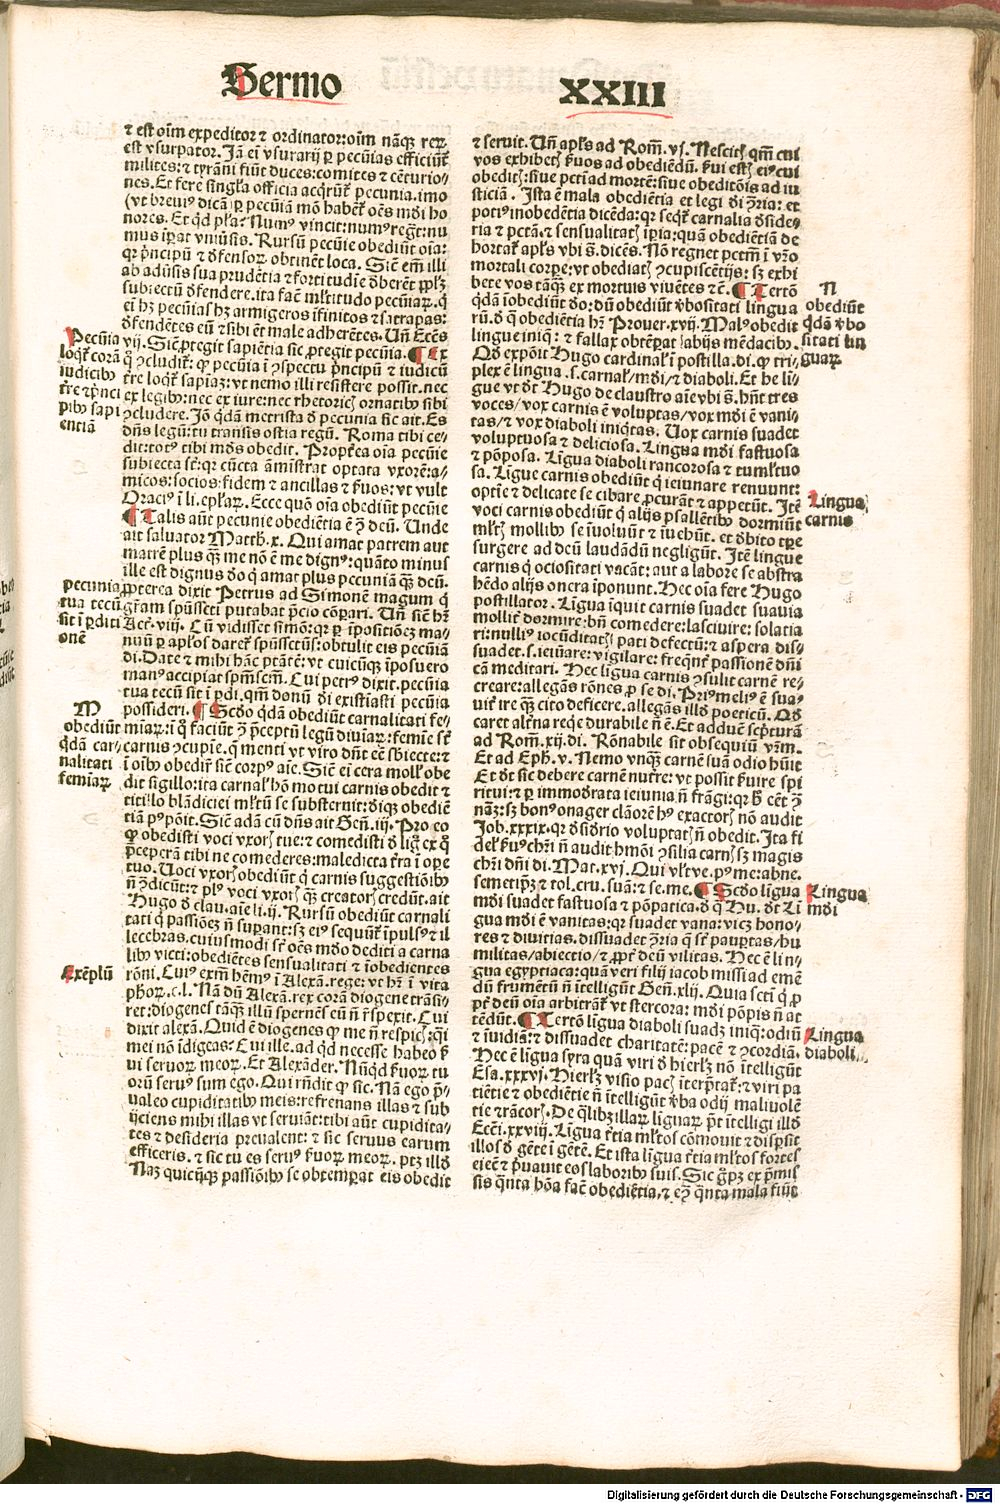 Sermo XXIII
⁊ est oīm expeditor ⁊ ordinator: oīm nāqꝫ reꝝ
est vsurpator. Jā eī vsurarij ꝑ pecūias efficiūt᷑
milites: ⁊ tyrāni fiūt duces: comites ⁊ cēturio-
nes. Et fere singl'a officia acq̄rūt᷑ pecunia. imo
(vt breuiꝰ dicā) ꝑ pecūiā mō habēt᷑ oēs mōi ho
nores. Et qd́ pl'a? Numꝰ vincit: numꝰ regt᷑: nu
mus īꝑat vniūsis. Rursū pecūie obediūt oīa:
qꝛ p̄ncipū ⁊ d̄fensoꝝ obtinēt loca. Sic̄ em̄ illi
ab adūsis sua prudētia ⁊ fortitudie d̄berēt ppl'ꝫ
subiectū d̄fendere. ita fac̄ ml'titudo pecūiaꝝ. q̄
ei hꝫ pecūias hꝫ armigeros īfinitos ⁊ satrapas:
d̄fendētes eū ⁊ sibi ēt male adherētes. Uñ Ecc̄s
vij. Sic̄ ꝓtegit sapiētia sic ꝓtegit pecūia. ¶ Ex
q̄ ꝯcludit᷑: ꝙ pecūia ī ꝯspectu p̄ncipū ⁊ iudicū
t́re loqt᷑ sapiaꝫ: vt nemo illi resistere possit. nec
ex legibꝰ: nec ex iure: nec rhetoricꝭ ornatibꝰ sibi
ꝯcludere. Jō qd́ā metrista d̄ pecunia sic ait. Es
dñs legū: tu transis ostia regū. Roma tibi ce-
dit: totꝰ tibi mōs obedit. Propt́ea oīa pecūie
subiecta st᷑: qꝛ cūcta āmīstrat optata vxorē: a-
micos: socios: fidem ⁊ ancillas ⁊ s̄uos: vt vult
Oraciꝰ ī li. epl'aꝝ. Ecce quō oīa obediūt pecūie
¶ Talis aūt pecunie obediētia ē ꝯ̄ deū. Unde
ait saluator Matth. x. Qui amat patrem aut
matrē plus qꝫ me nō ē me dignꝰ: quāto minus
ille est dignus d̄o q̄ amat plus pecuniā qꝫ deū.
ꝓpterea dixit Petrus ad Simonē magum q̄
gr̄am spūssct̄i putabat p̄cio cōꝑari. Uñ sic̄ hꝫ
Act́. viij. Cū vidisset simō: qꝛ ꝑ īpositiōeꝫ ma-
nuū ꝑ apl'os daret᷑ spūssct̄ūs: obtulit eis pecūiā
di. Date ⁊ mihi hāc ptātē: vt cuicūqꝫ īposuero
manꝰ accipiat spm̄scm̄. Cui petrꝰ dixit. pecūia
tua tecū sit ī ꝑdi. qm̄ donū d̄i existiasti pecūia
possideri. ¶ Scd́o qd́ā obediūt carnalitati fe-
miaꝝ: i q̄ faciūt ꝯ̄ p̄ceptū legū diuiaꝝ: femie st᷑
carnis ꝯcupīe. q̄ menti vt viro dñt eē sb̄iecte: ⁊
ī oībꝰ obedit᷑ sic̄ corpꝰ aīe. Sic̄ ei cera moll' obe
dit sigillo: ita carnal' hō motui carnis obedit ⁊
titi'lo blādiciei ml'tū se substernit: d̄iqꝫ obediē
tiā pꝰpōit. Sic̄ adā cū dñs ait Gen̄. iij. Pro eo
ꝙ obedisti voci vxorꝭ tue: ⁊ comedisti d̄ lig᷑ ex q̄
p̄ceperā tibi ne comederes: maledicta t́ra ī oꝑe
tuo. Uoci vxorꝭ obediūt q̄ carnis suggestiōibꝰ
n̄ ꝯ̄dicūt: ⁊ plꝰ voci vxorꝭ qꝫ creatorꝭ credūt. ait
Hugo d̄ clau. aīe li. ij. Rursū obediūt carnali
tati q̄ passiōeꝫ n̄ suꝑant: sꝫ eiꝰ sequūt᷑ īpulsꝰ ⁊ il
lecebras. cuiusmodi st᷑ oēs mōo dediti a carna
libꝰ victi: obediētes sensualitati ⁊ īobedientes
rōni. Cuiꝰ exm̄ hēmꝰ ī Alexā. rege: vt hꝫ ī vita
pħoꝝ. c. l. Nā dū Alexā. rex corā diogene trāsi-
ret: diogenes tāqꝫ illū spernēs eū n̄ respexit. Cui
dixit alexā. Quid ē diogenes ꝙ me n̄ respicꝭ: q̄i
mei nō īdigeas? Cui ille. ad qd́ necesse habeo s̄
ui seruoꝝ meoꝝ. Et Alexāder. Nūqd́ s̄uoꝝ tu
orū seruꝰ sum ego. Qui rn̄dit ꝙ sic. Nā ego p̄-
ualeo cupiditatibꝰ meis: refrenans illas ⁊ sub
ijciens mihi illas vt seruiāt: tibi aūt cupidita-
tes ⁊ desideria preualent: ⁊ sic seruus earum
efficeris. ⁊ sic tu es seruꝰ s̄uoꝝ meoꝝ. ptꝫ illd́
Naꝫ quicūqꝫ passiōibꝰ se obtemꝑat eis obedit
Pecūia
loqt᷑ corā
iudicibꝰ
t́re ⁊ p̄nci
pibꝰ sapi
entiā
pecunia
tua tecū
sit ī ꝑditi
onē
M
obediūt
qd́ā car-
nalitati
femiaꝝ
Exēplū
⁊ seruit. Uñ apl's ad Rom̄. vj. Nescitꝭ qm̄ cui
vos exhibetꝭ s̄uos ad obediēdū. s̄ui estꝭ eiꝰ cui
obeditꝭ: siue pcti ad mortē: siue obeditōis ad iu
sticiā. Ista ē mala obediētia et legi d̄i ꝯ̄ria: et
potiꝰ inobedētia dicēda: qꝛ seqt᷑ carnalia d̄side-
ria ⁊ pctā. ⁊ sensualitatꝭ īꝑia: quā obediētiā de
hortat᷑ apl's vbi s̄. dicēs. Nō regnet pctm̄ ī vr̄o
mortali corꝑe: vt obediatꝭ ꝯcupiscētijs: sꝫ exhi
bete vos tāqꝫ ex mortuis viuētes ⁊c̄. ¶ Tertō
qd́ā īobediūt d̄o: dū obediūt v̄bositati lingua
rū. d̄ q̄ obediētia hꝫ Prouer. xvij. Malꝰ obedit
lingue iniq̄: ⁊ fallax obtēꝑat labijs mēdacibꝰ.
Qd́ expōit Hugo cardinal' ī postilla. di. ꝙ tri-
plex ē lingua. s. carnal'/ mōi/ ⁊ diaboli. Et he li-
gue vt d́t Hugo de claustro aīe vbi s̄. hn̄t tres
voces/ vox carnis ē voluptas/ vox mōi ē vani-
tas/ ⁊ vox diaboli iniq̄tas. Uox carnis suadet
voluptuosa ⁊ deliciosa. Lingua mōi fastuosa
⁊ pōposa. Līgua diaboli rancorosa ⁊ tuml'tuo
sa. Līgue carnis obediūt q̄ ieiunare renuunt:
optie ⁊ delicate se cibare ꝓcurāt ⁊ appetūt. Itē
voci carnis obediūt q̄ alijs psallētibꝰ dormiūt
ml'tꝭ mollibꝰ se īuoluūt ⁊ īuehūt. et d̄bito tꝑe
surgere ad deū laudādū negligūt. Itē lingue
carnis q̄ ociositati vacāt: aut a labore se abstra
hēdo alijs onera īponunt. Hec oīa fere Hugo
postillator. Līgua īquit carnis suadet suauia
mollit́ dormire: bn̄ comedere: lasciuire: solatia
ri: nulliꝰ iocūditatꝭ pati defectū: ⁊ aspera dis-
suadet. s. ieiūare: vigilare: freqn̄t᷑ passionē dn̄i
cā meditari. Hec līgua carnis ꝯsulit carnē re-
creare: allegās rōnes ꝓ se di. Priꝰ meliꝰ ē sua-
uit́ ire qꝫ cito deficere. allegās illd́ poeticū. Qd́
caret alt́na reqe durabile n̄ ē. Et adducē sc̄pturā
ad Rom̄. xij. di. Rōnabile sit obsequiū vr̄m.
Et ad Eph̄. v. Nemo vnqꝫ carnē suā odio hūit
Et d́t sic debere carnē nut́re: vt possit s̄uire spi
ritui: ⁊ ꝑ immod́rata ieiunia n̄ frāgi: qꝛ h̄ eēt ꝯ̄
nāꝫ: sꝫ bonꝰ onager clāorē hꝰ exactorꝭ nō audit
Job. xxxix. qꝛ d̄sid́rio voluptatꝭ n̄ obedit. Ita fi
del' s̄uꝰ chr̄i n̄ audit hmōi ꝯsilia carnꝭ sꝫ magis
chr̄i dn̄i di. Mat. xvj. Qui vl't ve. pꝰ me: abne.
semetip̄ꝫ ⁊ tol. cru. suā: ⁊ se. me. ¶ Scd́o līgua
mōi suadet fastuosa ⁊ pōpatica. d̄ q̄ Hu. d́t Li
gua mōi ē vanitas: qꝛ suadet vana: vicꝫ hono-
res ⁊ diuitias. dissuadet ꝯ̄ria q̄ st᷑ pauꝑtas/ hu
militas/ abiectio/ ⁊ ꝓpt́ deū vilitas. Hec ē lin-
gua egyptiaca: quā veri filij iacob missi ad emē
dū frumētū n̄ ītelligūt Gen̄. xlij. Quia sct̄i q̄ ꝓ
pt́ deū oīa arbitrāt᷑ vt stercora: mōi pōpis n̄ at
tēdūt. ¶ Tertō līgua diaboli suadꝫ iniq̄: odiū
⁊ īuidiā: ⁊ dissuadet charitatē: pacē ⁊ ꝯcordiā.
Hec ē līgua syra quā viri d̄ hierl'ꝫ nō ītelligūt
Esa. xxxvj. Hierl'ꝫ visio pacꝭ īterp̄tat᷑: ⁊ viri pa
tiētie ⁊ obediētie n̄ ītelligūt v̄ba odij maliuolē
tie ⁊ rācorꝭ. De q̄libꝫ illaꝝ liguaꝝ p̄t ītelligi illd́
Ecc̄i. xxviij. Līgua t́tia ml'tos cōmouit ⁊ disꝑsit
illos d̄ gēte ī gētē. Et ista līgua t́tia ml'tos fortes
eiecit ⁊ p̄uauit eos laboribꝰ suis. Sic g̊ pꝫ ex p̄mis
sis q̄nta bōa fac̄ obediētia, ⁊ eꝯ̄ q̄nta mala fiūt
N
obediūt
qd́ā v̄bo
sitati lin
guaꝝ
Lingua
carnis
Lingua
mōi
Lingua
diaboli
Digitalisierung gefördert durch die Deutsche Forschungsgemeinschaft - DFG